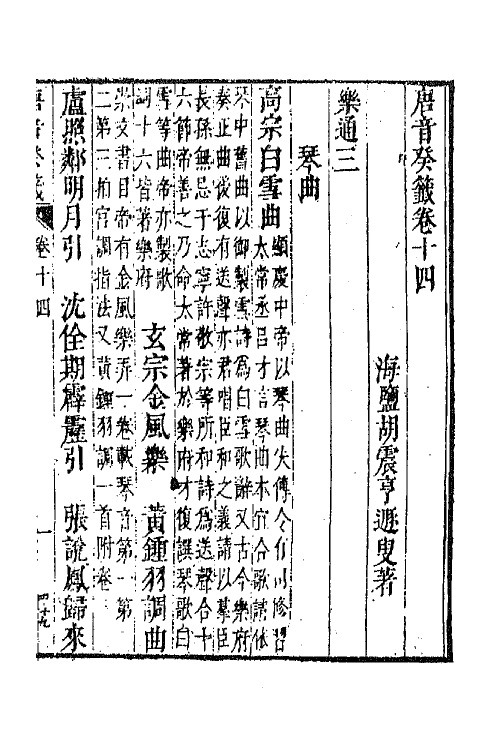 唐音癸籤卷十四
海鹽胡震亨遯叟著
樂通三
琴曲
高宗白雪曲
顯慶中帝以琴曲失傳令有司修習
太常丞呂才言琴曲本宜合歌請依
琴中舊曲以御製雪詩為白雪歌辭又古今樂府
奏正曲後復有送聲亦君唱臣和之義請以羣臣
長孫無忌于志寧許敬宗等所和詩為送聲合十
六節帝善之乃命太常著於樂府才復譔琴歌白
雪等曲帝亦製歌
詞十六皆著樂府
玄宗金風樂 黃鍾羽調曲
崇文書目帝有金風樂弄一卷載琴音第一第
二第三拍宮調指法又黃鍾羽調一首附卷
盧照鄰明月引 沈佺期霹靂引 張說鳳歸來
唐音癸籤 卷十四 一